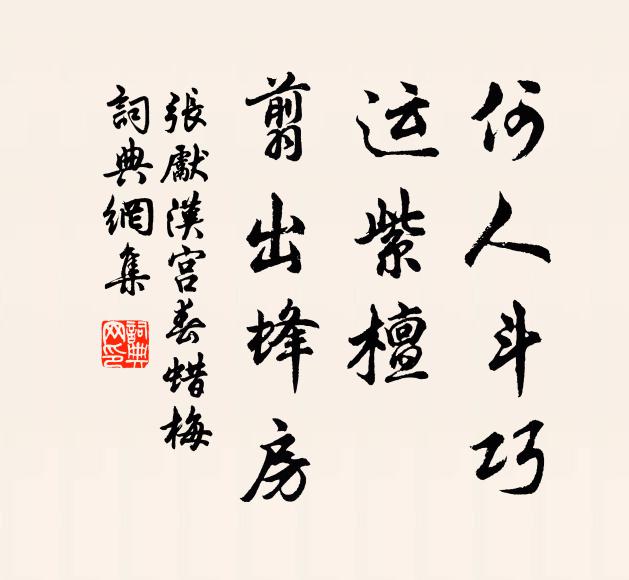 何人斗巧
运紫檀
剪出蜂房
張獻漢宮春蜡梅
詞典網集
詞典
网印